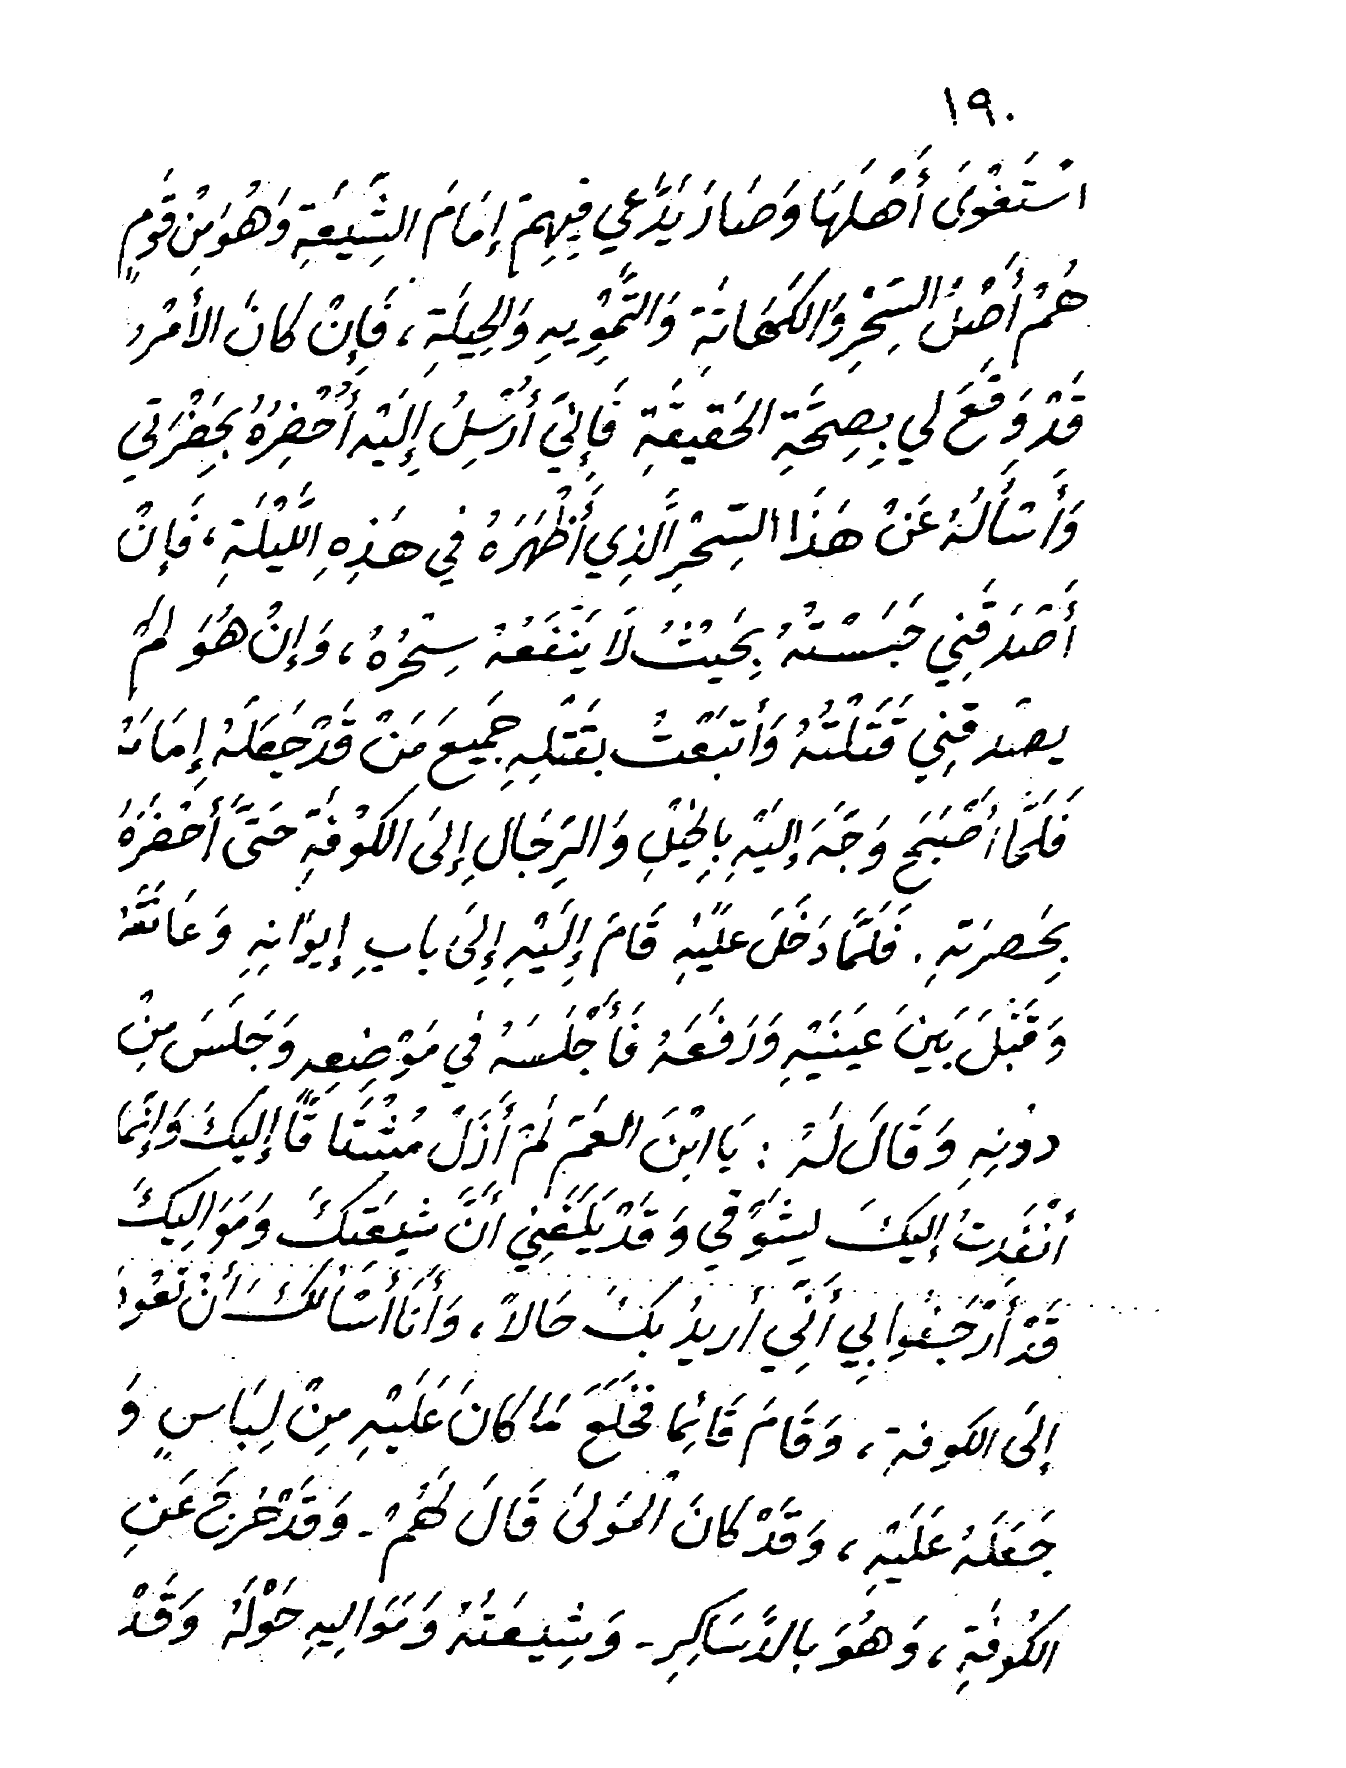 ١٩٠
اسْتَغْوَى أَهْلَهَا وَصَارَ يَدَّعي فِيهِمْ إِمَامَ الشِّيعَةِ وَهُوَ مِنْ قَومٍ
هُمْ أَصْلُ السِّحْرِ وَالكَهَانَةِ وَالتَّمْوِيهِ وَالحِيلَةِ ، فَإِنْ كانَ الأَمْرُ
قَدْ وَقَعَ لي بِصِحَّةِ الحَقيقَةِ فَإِنِّي أُرْسِلُ إِلَيْهِ أُحْضِرُهُ بِحَضْرَتي
وَأَسْأَلُهُ عَنْ هَذَا السِّحْرِ الَّذِي أَظْهَرَهُ في هَذِهِ اللَّيْلَةِ ، فَإِنْ
أَصْدَقَنِي حَبَسْتُهُ بِحَيْثُ لَا يَنْفَعُهُ سِحْرُهُ ، وَإِنْ هُوَ لَمْ
يصْدقنِي قَتَلْتُهُ وَأَتبَعْتُ بقَتْلِهِ جَمِيعَ مَنْ قَدْ جَعَلَهُ إِمَامَهُ
فَلَمَّا أَصْبَحَ وَجَّهَ إِليْهِ بِالخَيْلِ وَالرِّجَالِ إِلىَ الكوْفَةِ حَتَّى أَحْضَرَهُ
بِحَضرَتهِ . فَلَمَّا دَخَلَ عَلَيْهِ قَامَ إِلَيْهِ إِلِىَ بابِ إِيوَانِهِ وَعَانَقَهُ
وَقَبَّلَ بَينَ عَينَيْهِ وَرَفَعَهُ فَأَجْلَسَهُ في مَوْضِعِهِ وَجَلَسَ مِنْ
دونِهِ وَقَالَ لَهُ : يَا ابْنَ العَمِّ لَمْ أَزَلْ مُشْتَاقًا إِليكَ وَإِنَّمَا
أَنْفَدتُ إليكَ لِشَوْقي وَقَدْ بَلَغَنِي أنَّ شيعَتكَ وَمَوَالِيكَ
قَدْ أَرْجَفُوا بِي أَنِّي أريدُ بكَ حَالاً ، وَأَنَا أَسْأَلكَ أنْ تَعُودَ
إلَى الكوفةِ ، وَقَامَ قَائِما فخَلَعَ مَا كانَ عَلَيْهِ مِنْ لِبَاسٍ وَ
جَعَلَهُ عَلَيْهِ ، وَقَدْ كانَ الْمَوْلىَ قَالَ لَهُمْ - وَقَدْ خرجَ عَنِ
الكُوفَةِ ، وَهُوَ بالاسَاكِرِ - وَشِيعَتُهُ وَمَوَالِيهِ حَوْلَهُ وَقَدْ